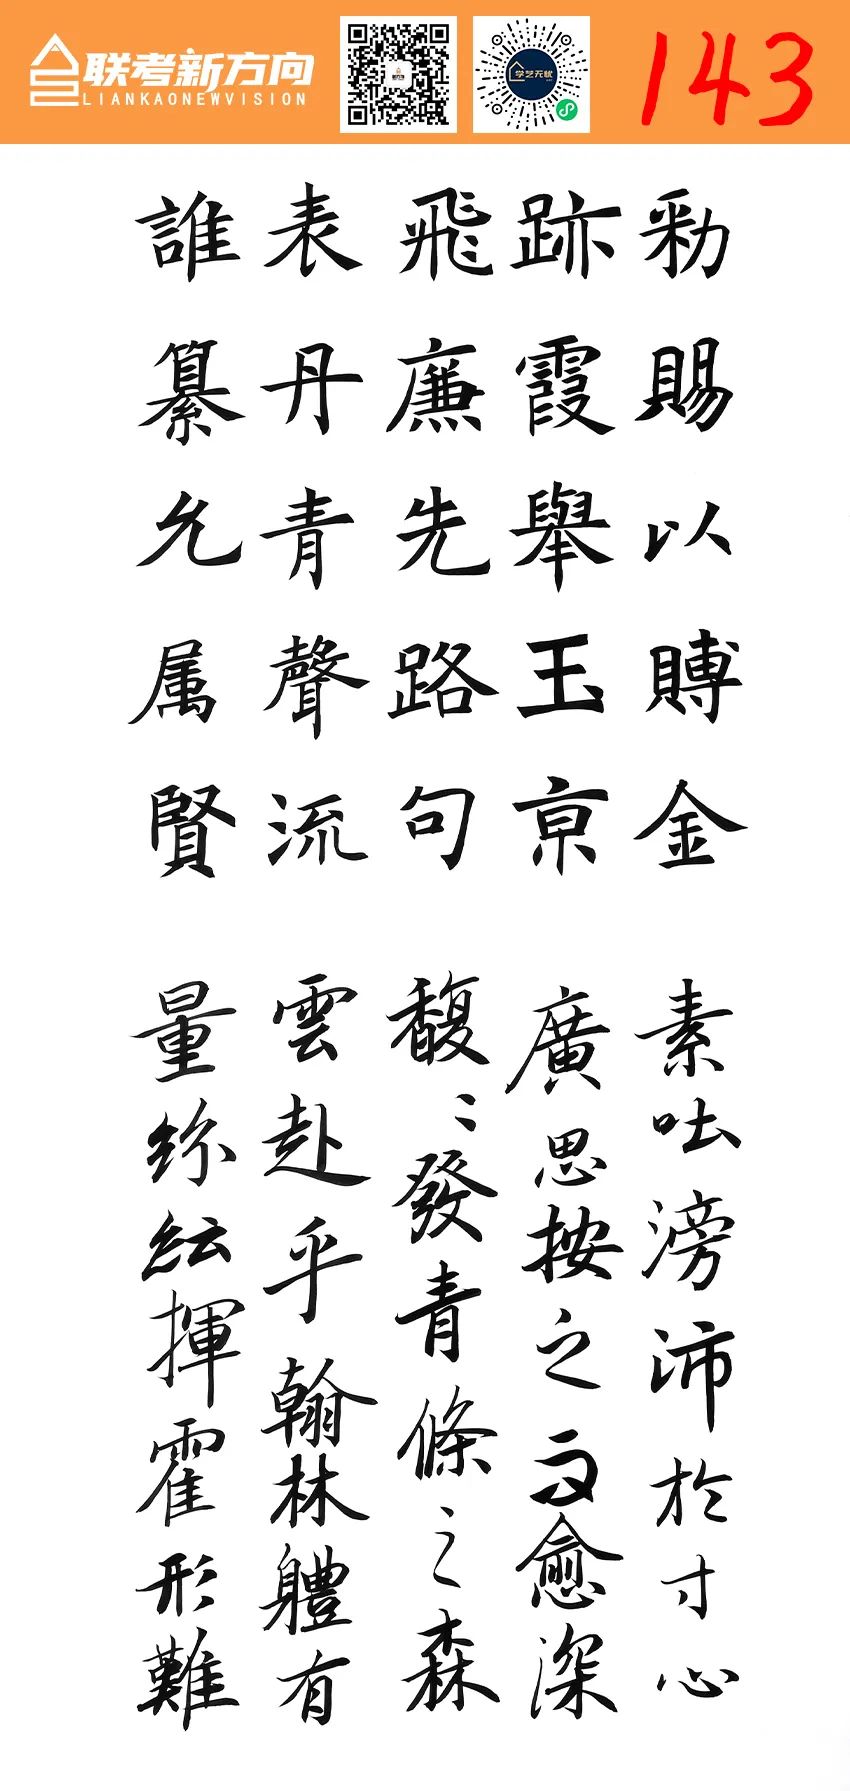 联考新方向
LIANKAONEWVISION
学艺无忧
143
勑賜以賻金
跡霞舉玉京
飛廉先路句
表丹青聲流
誰纂允属賢
素吐滂沛於寸心
廣思按之而愈深
馥〻發青條之森
雲赴乎翰林體有
量紛紜揮霍形難